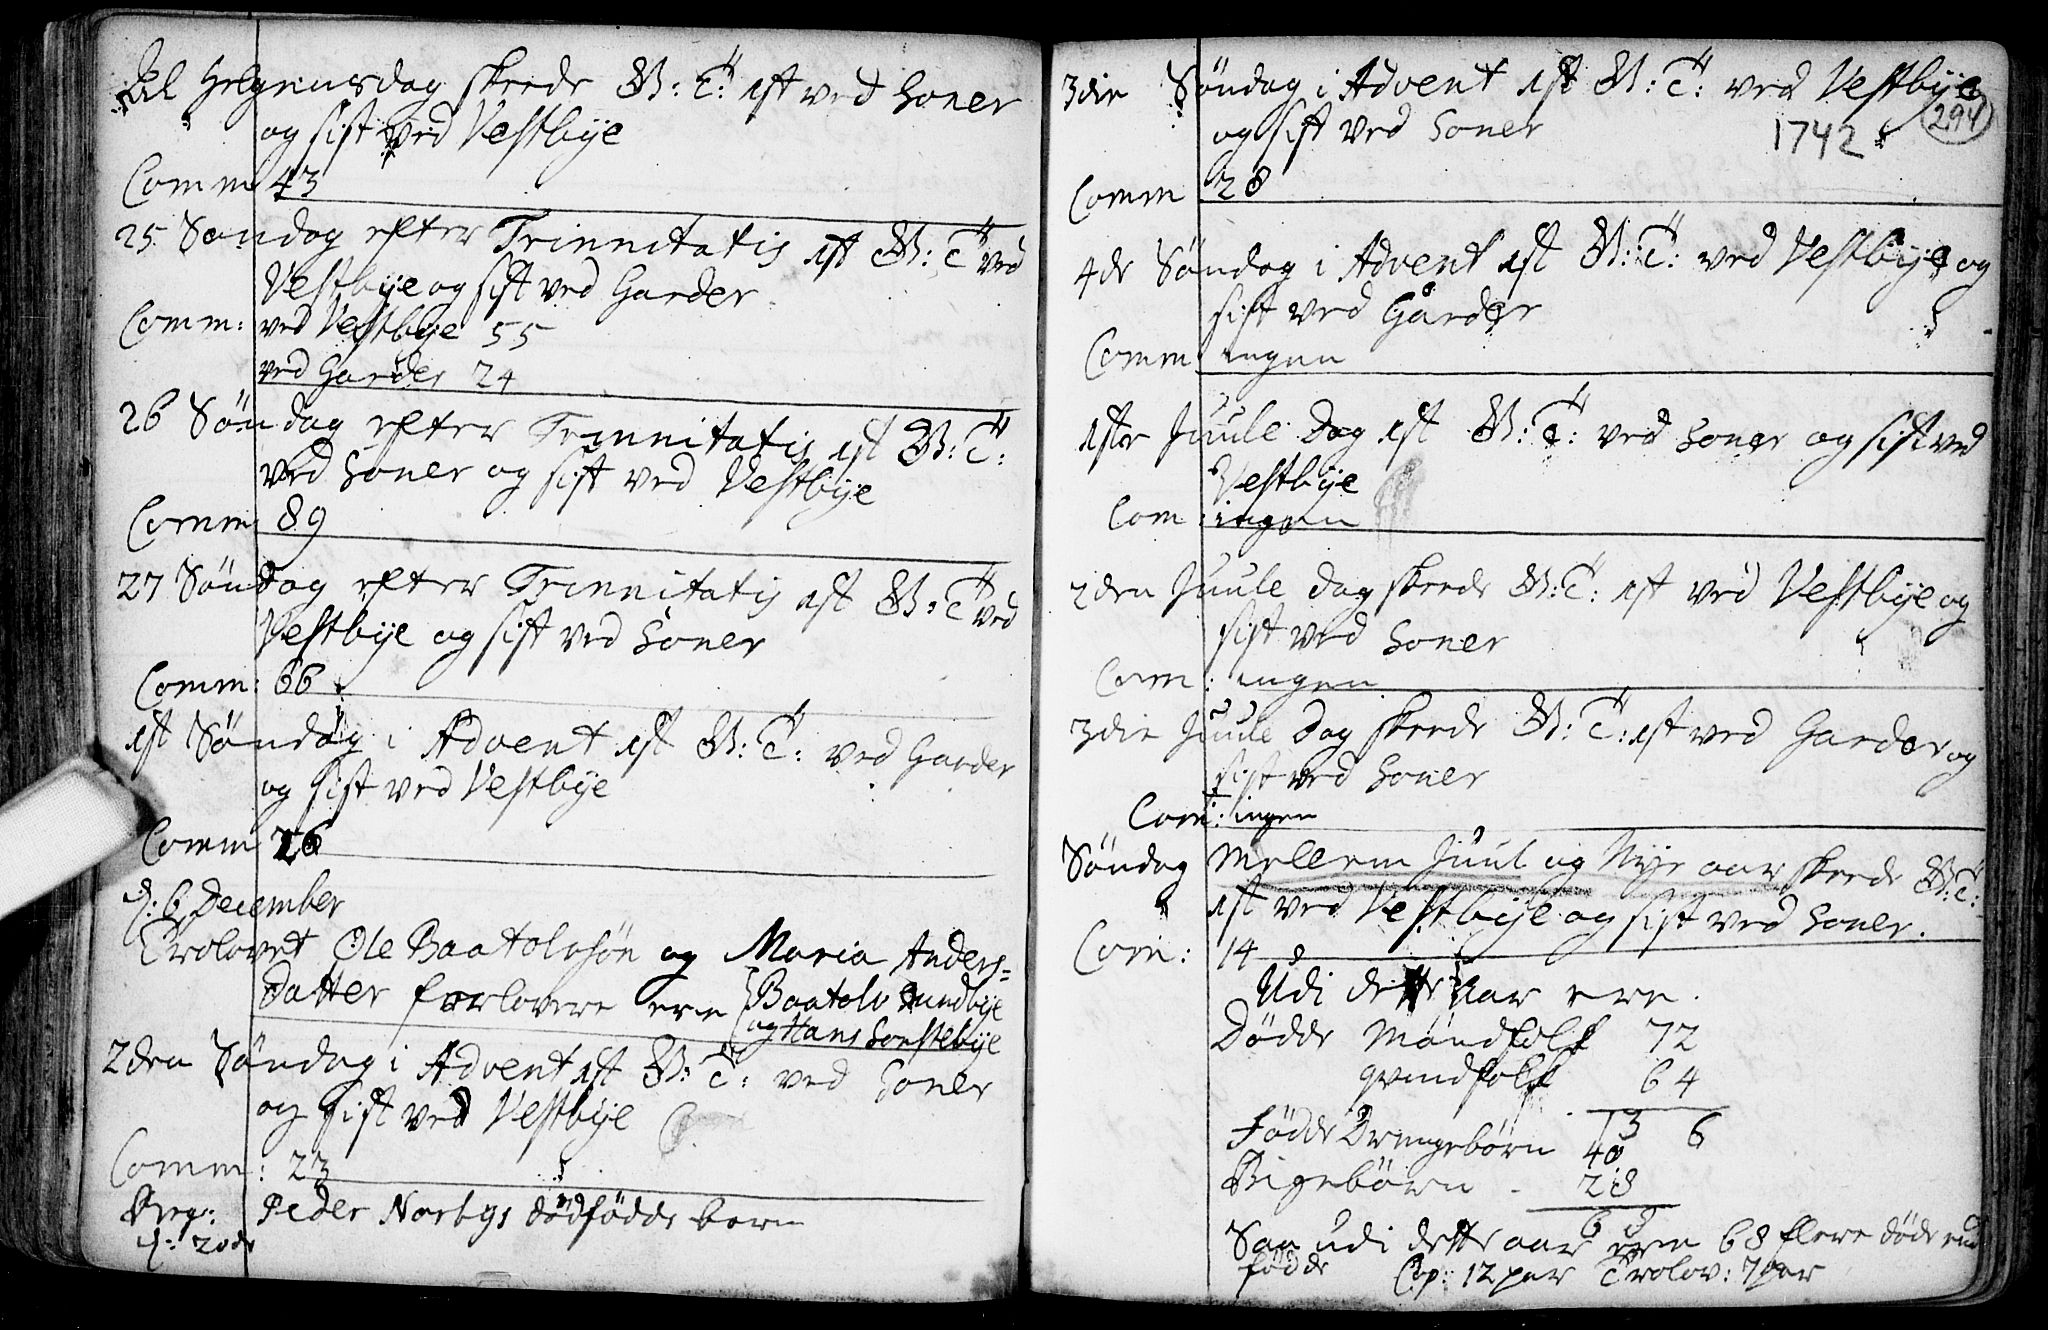 Al Helgensdag skeede G: T: 1st ved Soner
og sist ved Vestbÿe
Comm 43
25 Søndag efter Trinnitatis 1st G: T: ved
Vestbÿe og sist ved Garder
Comm: ved Vestbÿe 55
ved Garder 24
26 Søndag efter Trinnitatis 1st G: T:
ved Soner og sist ved Vestbÿe
Comm 89
27 Søndag efter Trinnitatis 1st G: T: ved
Vestbÿe og sist ved Soner
Comm: 66
1st Søndag i Advent 1st G: T: ved Garder
og sist ved Vestbÿe
Comm 26
d: 6 December
Trolovet Ole Baatolvsøn og Maria Anders=
Datter forlovere ere Baatolv Hundbÿe
og Hans Sonstebÿe
2den Søndag i Advent 1st G: T: ved Soner
og sist ved Vestbÿe
Comm: 23
Peder Norbys dødfødde barn
d: 20de
3die Søndag i Advent 1st G: T: ved Vestbÿe
og sist ved Soner
294
1742
Comm 28
4de Søndag i Advent 1st G: T: ved Vestbÿe og
sist ved Garder
Comm ingen
1ste Juule Dag 1st G: T: ved Soner og sist ved
Vestbÿe
Com: ingen
2den Juule dag skeede G: T: 1st ved Vestbÿe og
sist ved Soner
Com: ingen
3die Juule Dag skeede G: T: 1st ved Garder og
sist ved Soner
Com: ingen
Søndag Mellem Juul og Nÿe aar skeede G: T:
1st ved Vestbÿe og sist ved Soner.
Com: 14
Udi dette Aar ere.
Dødde Mandfolk 72
qvindfolk 64
136
Fødde Drengebørn 40
Pigebørn - 28
68
Saa udi dette aar ere 68 flere døde end
fødde Cop: 12 par Trolov: 7 par